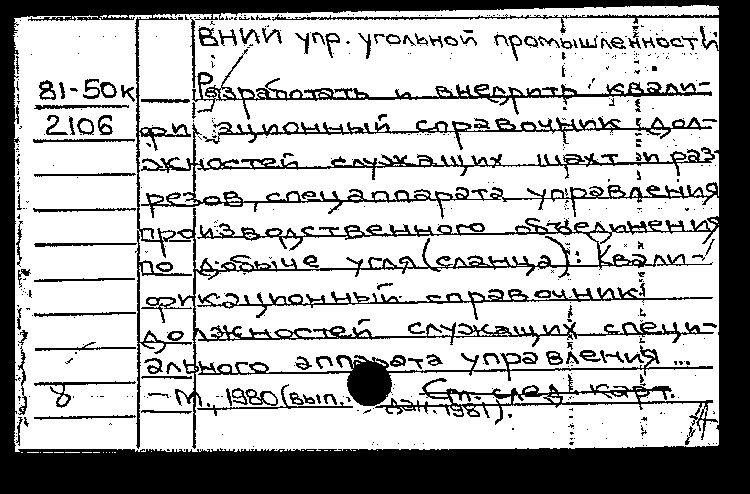 ВНИИ упр. угольной промышленности
81-50к Разработать и внедрить квали-
2106 фикационный справочник дол-
жностей служащих шахт и раз-
резов, спецаппарата управления
производственного объединения
по добыче угля (сланца): Квали-
фикационный справочник
должностей служащих специ-
ального аппарата управления ...
8 – М., 1980 (вып. 1981).
См. след. карт.